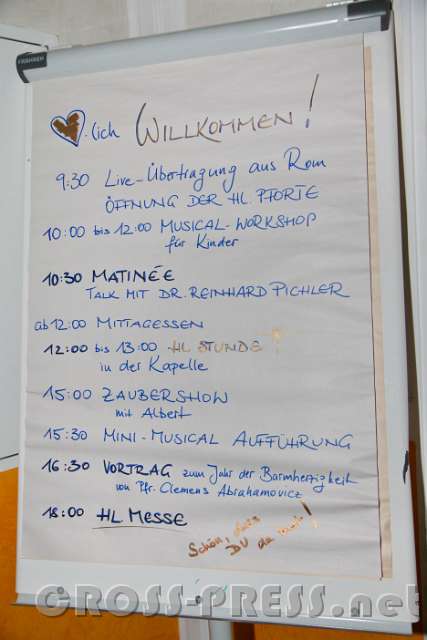 FRANKEN
-lich WILLKOMMEN!
9:30 Live-Übertragung aus Rom
ÖFFNUNG DER HL. PFORTE
10:00 bis 12:00 MUSICAL-WORKSHOP
für Kinder
10:30 MATINÉE
TALK MIT DR. REINHARD PICHLER
ab 12:00 MITTAGESSEN
12:00 bis 13:00 HL STUNDE
in der Kapelle
15:00 ZAUBERSHOW
mit Albert
15:30 MINI-MUSICAL AUFFÜHRUNG
16:30 VORTRAG zum Jahr der Barmherzigkeit
von Pfr. Clemens Abrahamovicz
18:00 HL MESSE
Schön, dass
DU da bist!
GROSS-PRESS.net